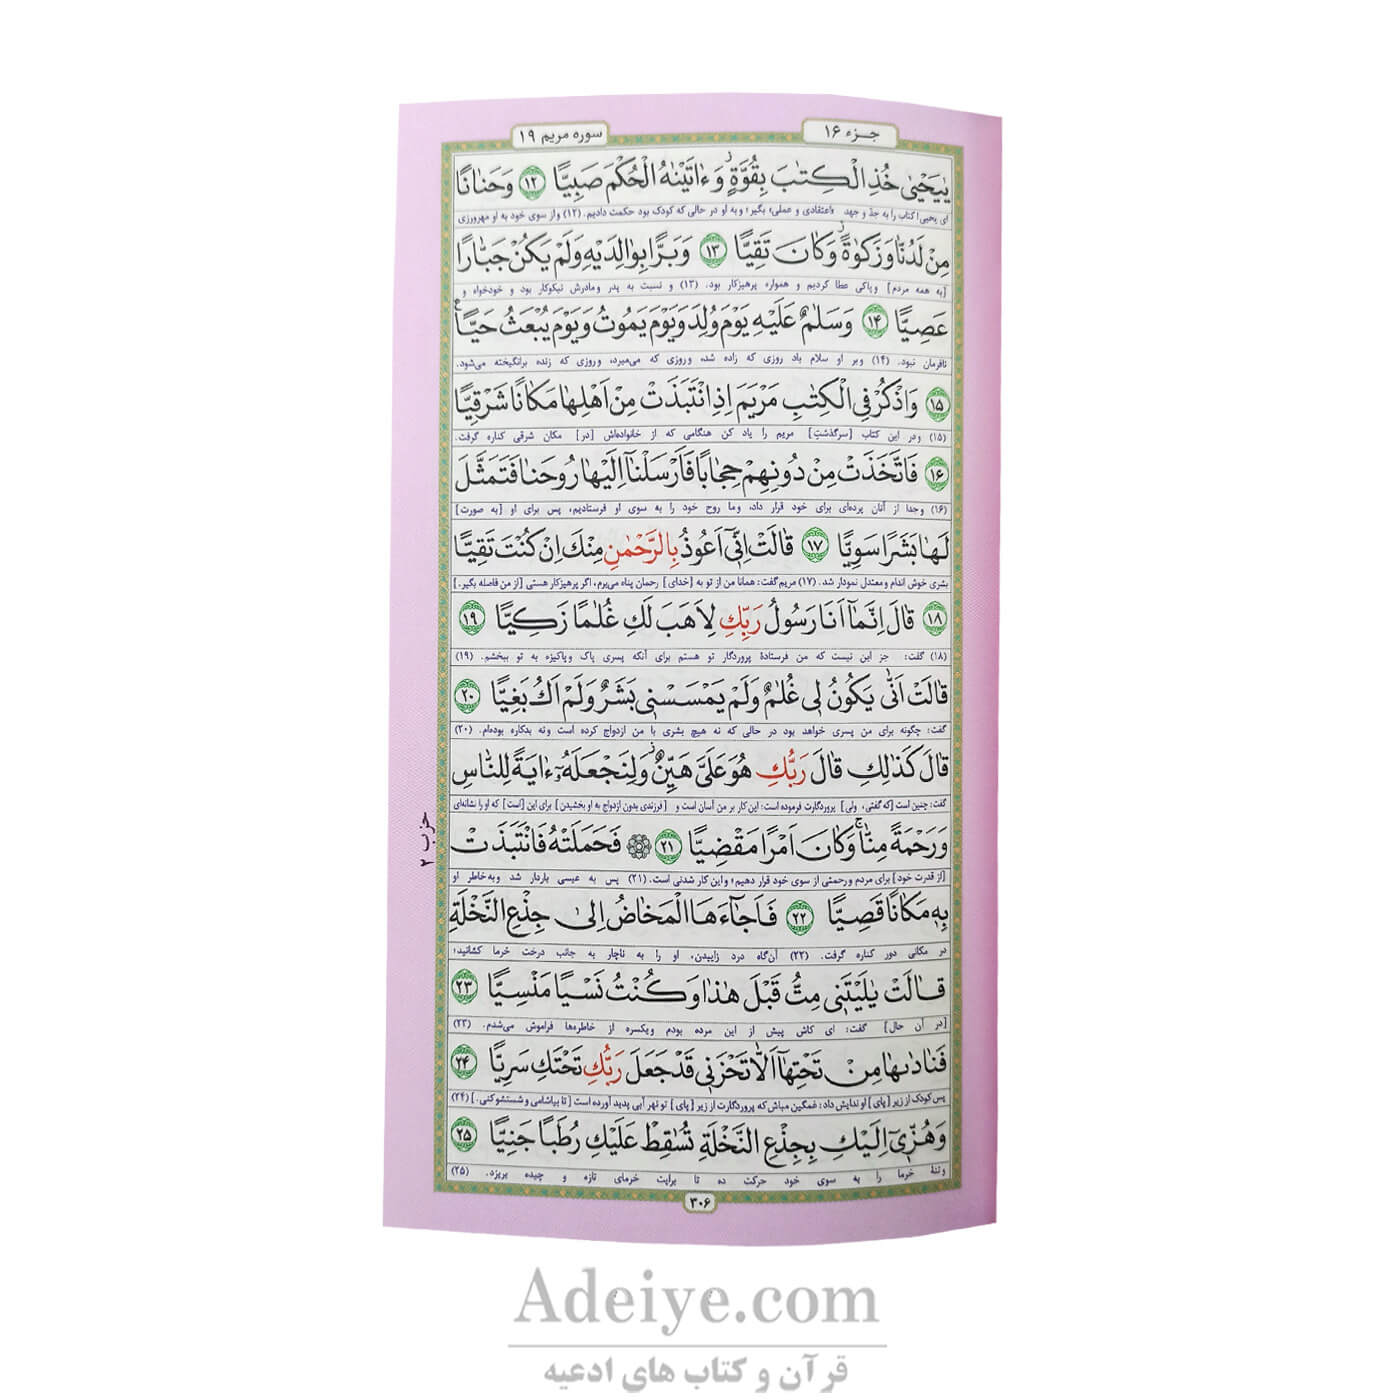 جـزء ۱۶
سوره مریم ۱۹
يٰيَحْيٰى خُذِ الْكِتٰبَ بِقُوَّةٍ وَ ءٰاتَيْنٰهُ الْحُكْمَ صَبِيًّا ۱۲ وَحَنٰانًا
ای یحیی! کتاب را به جدّ و جهد «اعتقادی و عملی» بگیر؛ و به او در حالی که کودک بود حکمت دادیم. (۱۲) و از سوی خود به او مهرورزی
مِنْ لَدُنّٰا وَ زَكٰوةً وَ كٰانَ تَقِيًّا ۱۳ وَ بَرًّا بِوٰالِدَيْهِ وَلَمْ يَكُنْ جَبّٰارًا
[به همه مردم] و پاکی عطا کردیم و همواره پرهیزکار بود. (۱۳) و نسبت به پدر و مادرش نیکوکار بود و خودخواه و
عَصِيًّا ۱۴ وَ سَلٰمٌ عَلَيْهِ يَوْمَ وُلِدَ وَ يَوْمَ يَمُوتُ وَ يَوْمَ يُبْعَثُ حَيًّا
نافرمان نبود. (۱۴) و بر او سلام باد روزی که زاده شد، و روزی که می‌میرد، و روزی که زنده برانگیخته می‌شود.
۱۵ وَ اذْكُرْ فِي الْكِتٰبِ مَرْيَمَ اِذِ انْتَبَذَتْ مِنْ اَهْلِهٰا مَكٰانًا شَرْقِيًّا
(۱۵) و در این کتاب [سرگذشتِ] مریم را یاد کن هنگامی که از خانواده‌اش [در] مکان شرقی کناره گرفت.
۱۶ فَاتَّخَذَتْ مِنْ دُونِهِمْ حِجٰابًا فَاَرْسَلْنٰآ اِلَيْهٰا رُوحَنٰا فَتَمَثَّلَ
(۱۶) و جدا از آنان پرده‌ای برای خود قرار داد، و ما روح خود را به سوی او فرستادیم، پس برای او [به صورت]
لَهٰا بَشَرًا سَوِيًّا ۱۷ قٰالَتْ اِنّٖيٓ اَعُوذُ بِالرَّحْمٰنِ مِنْكَ اِنْ كُنْتَ تَقِيًّا
بشری خوش اندام و معتدل نمودار شد. (۱۷) مریم گفت: همانا من از تو به [خدای] رحمان پناه می‌برم، اگر پرهیزکار هستی [از من فاصله بگیر.]
۱۸ قٰالَ اِنَّمٰآ اَنَا رَسُولُ رَبِّكِ لِاَهَبَ لَكِ غُلٰمًا زَكِيًّا ۱۹
(۱۸) گفت: جز این نیست که من فرستادهٔ پروردگار تو هستم برای آنکه پسری پاک و پاکیزه به تو ببخشم. (۱۹)
قٰالَتْ اَنّٰى يَكُونُ لِي غُلٰمٌ وَلَمْ يَمْسَسْنِي بَشَرٌ وَلَمْ اَكُ بَغِيًّا ۲۰
گفت: چگونه برای من پسری خواهد بود در حالی که نه هیچ بشری با من ازدواج کرده است و نه بدکاره بوده‌ام. (۲۰)
قٰالَ كَذٰلِكِ قٰالَ رَبُّكِ هُوَ عَلَيَّ هَيِّنٌ وَ لِنَجْعَلَهُٓ ءٰايَةً لِلنّٰاسِ
گفت: چنین است [که گفتی، ولی] پروردگارت فرموده است: این کار بر من آسان است و [فرزندی بدون ازدواج به او بخشیدن] برای این [است] که او را نشانه‌ای
وَ رَحْمَةً مِنّٰا وَ كٰانَ اَمْرًا مَقْضِيًّا ۲۱ فَحَمَلَتْهُ فَانْتَبَذَتْ
[از قدرت خود] برای مردم و رحمتی از سوی خود قرار دهیم؛ و این کار شدنی است. (۲۱) پس به عیسی باردار شد و به خاطر او
حزب ۲
بِهٖ مَكٰانًا قَصِيًّا ۲۲ فَاَجٰآءَهَا الْمَخٰاضُ اِلٰى جِذْعِ النَّخْلَةِ
در مکانی دور کناره گرفت. (۲۲) آن‌گاه درد زاییدن، او را به ناچار به جانب درخت خرما کشانید؛
قٰالَتْ يٰلَيْتَنِي مِتُّ قَبْلَ هٰذٰا وَ كُنْتُ نَسْيًا مَنْسِيًّا ۲۳
[در آن حال] گفت: ای کاش پیش از این مرده بودم و یکسره از خاطره‌ها فراموش می‌شدم. (۲۳)
فَنٰادٰىهٰا مِنْ تَحْتِهٰآ اَلّٰا تَحْزَنِي قَدْ جَعَلَ رَبُّكِ تَحْتَكِ سَرِيًّا ۲۴
پس کودک از زیر [پای] او ندایش داد: غمگین مباش که پروردگارت از زیر [پای] تو نهر آبی پدید آورده است [تا بیاشامی و شستشو کنی.] (۲۴)
وَ هُزّٖيٓ اِلَيْكِ بِجِذْعِ النَّخْلَةِ تُسٰقِطْ عَلَيْكِ رُطَبًا جَنِيًّا ۲۵
و تنهٔ خرما را به سوی خود حرکت ده تا برایت خرمای تازه و چیده بریزد. (۲۵)
۳۰۶
Adeiye.com
قرآن و کتاب های ادعیه